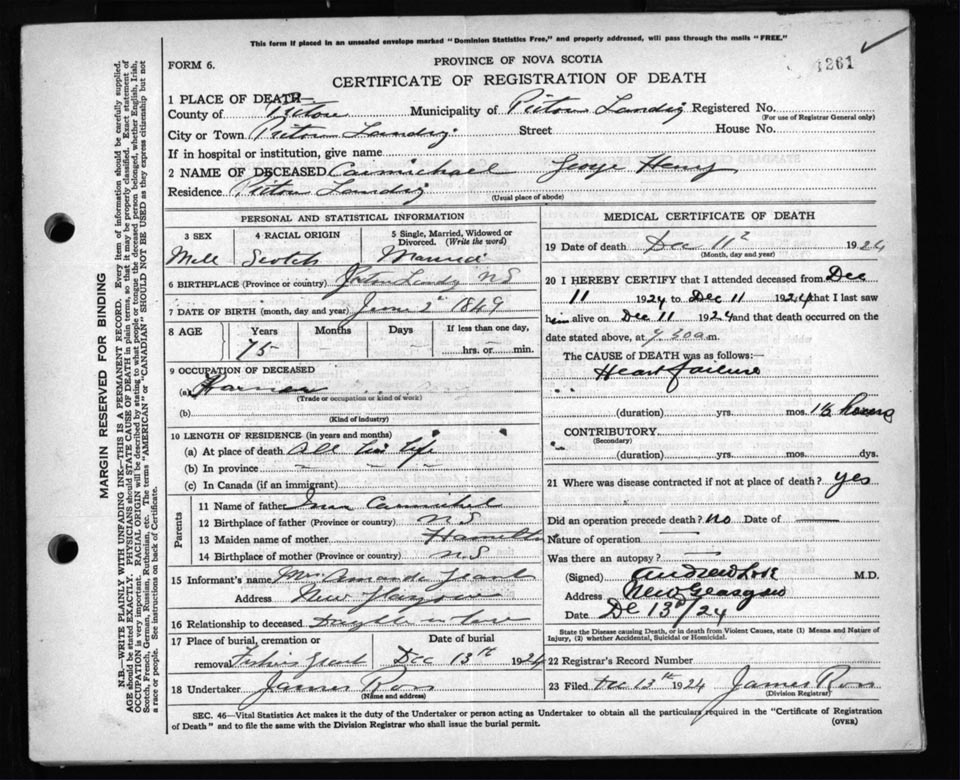 This form if placed in an unsealed envelope marked "Dominion Statistics Free," and properly addressed, will pass through the mails "FREE."
FORM 6.
PROVINCE OF NOVA SCOTIA
1261
CERTIFICATE OF REGISTRATION OF DEATH
1 PLACE OF DEATH—
County of Pictou Municipality of Pictou Landing Registered No.
(For use of Registrar General only)
City or Town Pictou Landing Street House No.
If in hospital or institution, give name
2 NAME OF DECEASED Carmichael George Henry
Residence Pictou Landing
(Usual place of abode)
PERSONAL AND STATISTICAL INFORMATION
3 SEX 4 RACIAL ORIGIN 5 Single, Married, Widowed or Divorced. (Write the word)
Scotch Married
6 BIRTHPLACE (Province or country) NS
7 DATE OF BIRTH (month, day and year) June 2 1849
8 AGE Years Months Days If less than one day,
75 hrs. or min.
9 OCCUPATION OF DECEASED
(a)
(Trade or occupation or kind of work)
(b)
(Kind of industry)
10 LENGTH OF RESIDENCE (in years and months)
(a) At place of death All his life
(b) In province " " "
(c) In Canada (if an immigrant)
Parents
11 Name of father Carmichel
12 Birthplace of father (Province or country) NS
13 Maiden name of mother Hamilton
14 Birthplace of mother (Province or country) NS
15 Informant's name Mrs Amanda
Address New Glasgow
16 Relationship to deceased Daughter in law
17 Place of burial, cremation or removal Date of burial
Fishers Grant Dec 13th 1924
18 Undertaker James Ross
(Name and address)
MEDICAL CERTIFICATE OF DEATH
19 Date of death Dec 11 1924
(Month, day and year)
20 I HEREBY CERTIFY that I attended deceased from Dec
11 1924 to Dec 11 1924 that I last saw
him alive on Dec 11 1924 and that death occurred on the
date stated above, at m.
The CAUSE OF DEATH was as follows:—
Heart failure
(duration) yrs. mos. hours
CONTRIBUTORY
(Secondary)
(duration) yrs. mos. dys.
21 Where was disease contracted if not at place of death? yes
Did an operation precede death? no Date of —
Nature of operation —
Was there an autopsy? —
(Signed) Andrew Love M.D.
Address New Glasgow
Date De 13/24
State the Disease causing Death, or in death from Violent Causes, state (1) Means and Nature of
Injury, (2) whether Accidental, Suicidal or Homicidal.
22 Registrar's Record Number
23 Filed Dec 13th 1924 James Ross
(Division Registrar)
SEC. 46—Vital Statistics Act makes it the duty of the Undertaker or person acting as Undertaker to obtain all the particulars required in the "Certificate of Registration
of Death" and to file the same with the Division Registrar who shall issue the burial permit.
(OVER)
MARGIN RESERVED FOR BINDING
N.B.—WRITE PLAINLY WITH UNFADING INK—THIS IS A PERMANENT RECORD. Every item of information should be carefully supplied.
AGE should be stated EXACTLY. PHYSICIANS should STATE CAUSE OF DEATH in plain terms, so that it may be properly classified. Exact statement of
OCCUPATION is very important. RACIAL ORIGIN will be described by stating to what people or tongue the deceased person belonged, whether English, Irish,
Scotch, French, German, Russian, Ruthenian, etc. The terms "AMERICAN" or "CANADIAN" SHOULD NOT BE USED as they express citizenship but not
a race or people. See instructions on back of Certificate.